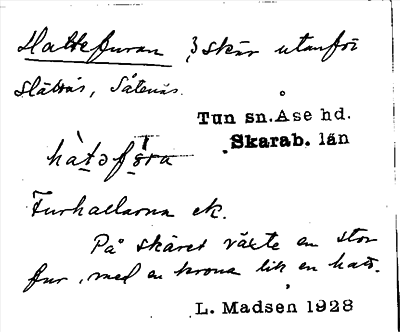 Hattefuran, skär utanför
Slättnäs, Såtenäs.
Tun sn. Åse hd.
Skarab. län
hàtəfʹra
Furhallarna ek.
På skäret växte en stor
fur, med en krona lik en hatt.
L. Madsen 1928